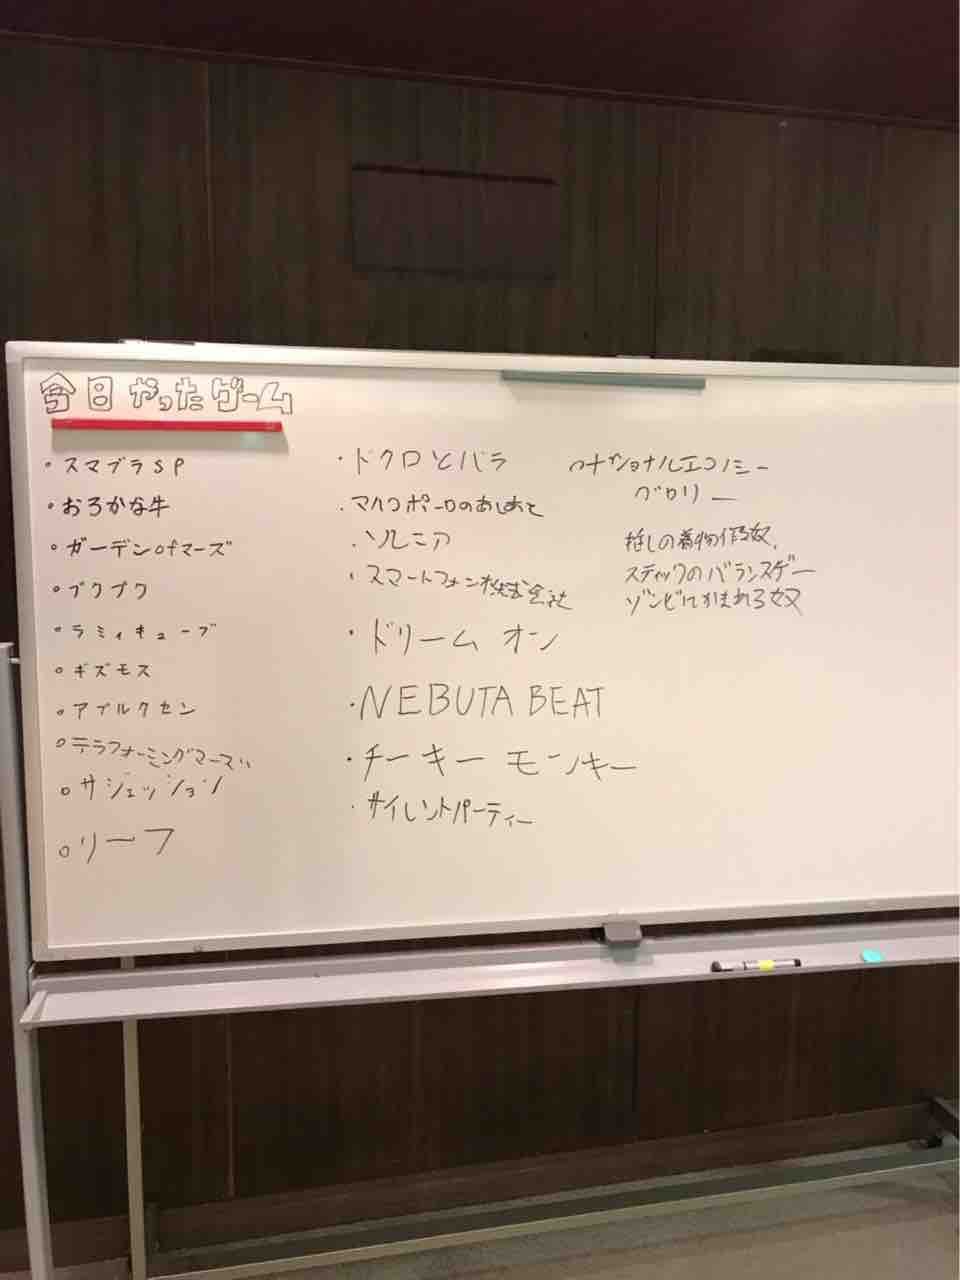 今日やったゲーム
・スマブラSP
・おろかな牛
・ガーデンofマーズ
・ブクブク
・ラミィキューブ
・ギズモス
・アブルクセン
・テラフォーミングマーズ
・サジェッション
・リーフ
・ドクロとバラ
・マルコポーロのあしあと
・ソレニア
・スマートフォン株式会社
・ドリームオン
・NEBUTA BEAT
・チーキーモンキー
・サイレントパーティー
・ナショナルエコノミー
グロリー
推しの着物作る奴
スティックのバランスゲー
ゾンビにかまれる奴